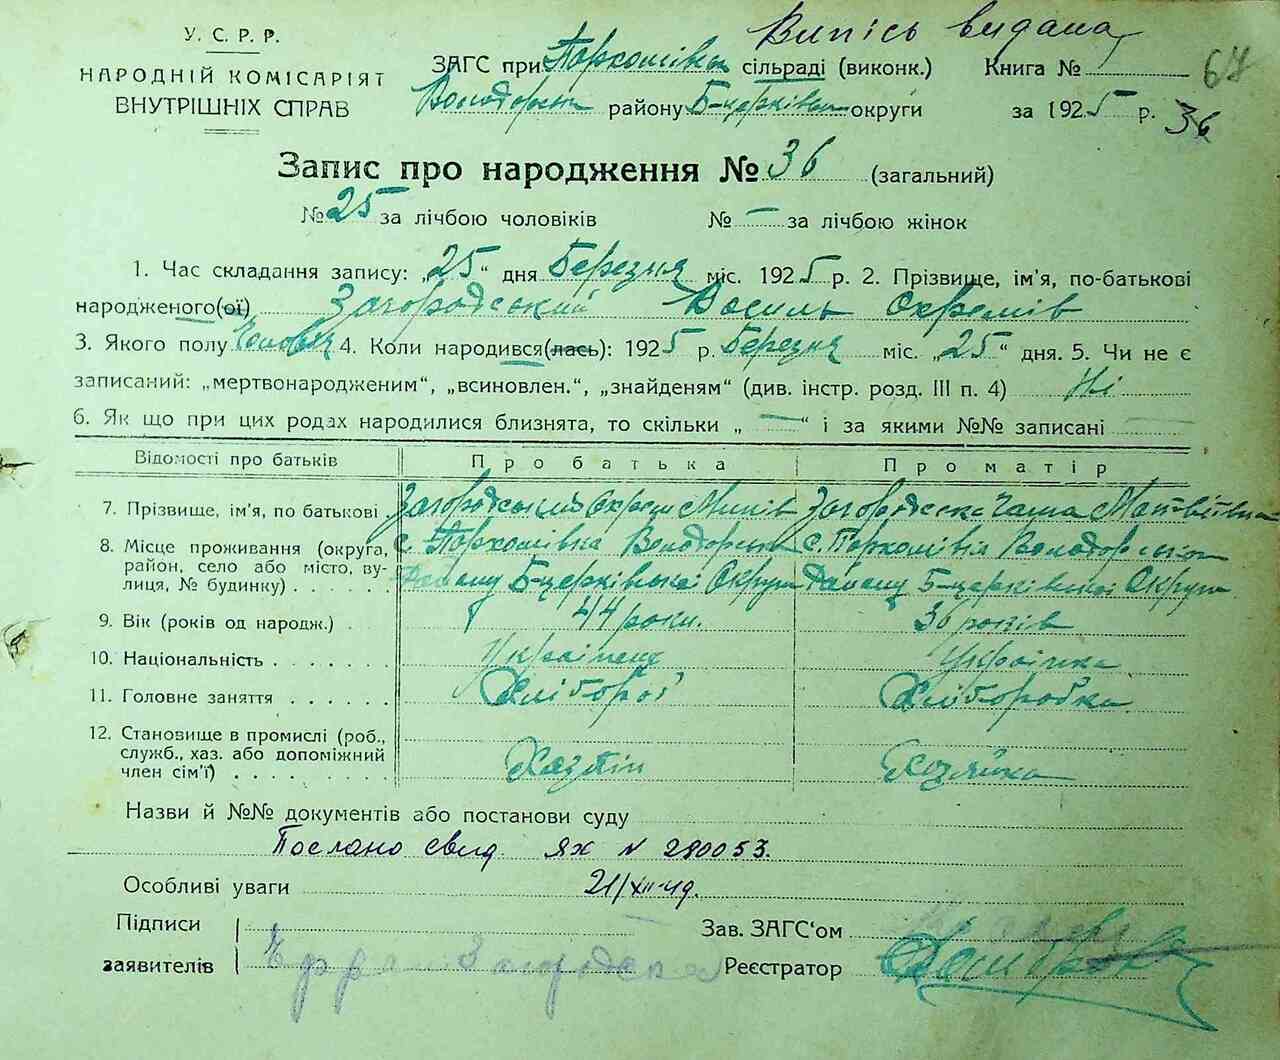 Випісь видана
У. С. Р. Р.
НАРОДНІЙ КОМІСАРІЯТ
ВНУТРІШНІХ СПРАВ
ЗАГС при Пархомівськ сільраді (виконк.) Книга № 67
Володарськ району Б-церківськ округи за 1925 р. 36
Запис про народження № 36 (загальний)
№ 25 за лічбою чоловіків № — за лічбою жінок
1. Час складання запису: „25“ дня Березня міс. 1925 р. 2. Прізвище, ім'я, по-батькові
народженого(ої) Загородський Василь Охремів
3. Якого полу Чоловік 4. Коли народився(лась): 1925 р. Березня міс. „25“ дня. 5. Чи не є
записаний: „мертвонародженим“, „всиновлен.“, „знайденям“ (див. інстр. розд. III п. 4) Ні
6. Як що при цих родах народилися близнята, то скільки „—“ і за якими №№ записані —
Відомості про батьків Про батька Про матір
7. Прізвище, ім'я, по батькові Загородський Охрем Загородська Матвіївна
8. Місце проживання (округа, район, село або місто, вулиця, № будинку) с. Пархомівка Володарськ Району Б-церківської Округи с. Пархомівка Володарськ Району Б-церківської Округи
9. Вік (років од народж.) 44 роки. 36 років
10. Національність Українець Українка
11. Головне заняття Хлібороб Хліборобка
12. Становище в промислі (роб., служб., хаз. або допоміжний член сім'ї) Хазяїн Хозяйка
Назви й №№ документів або постанови суду
Послано свид ЯХ N 280053.
Особливі уваги 21/XII-49.
Підписи
заявителів Загородськ
Зав. ЗАГС'ом
Реєстратор